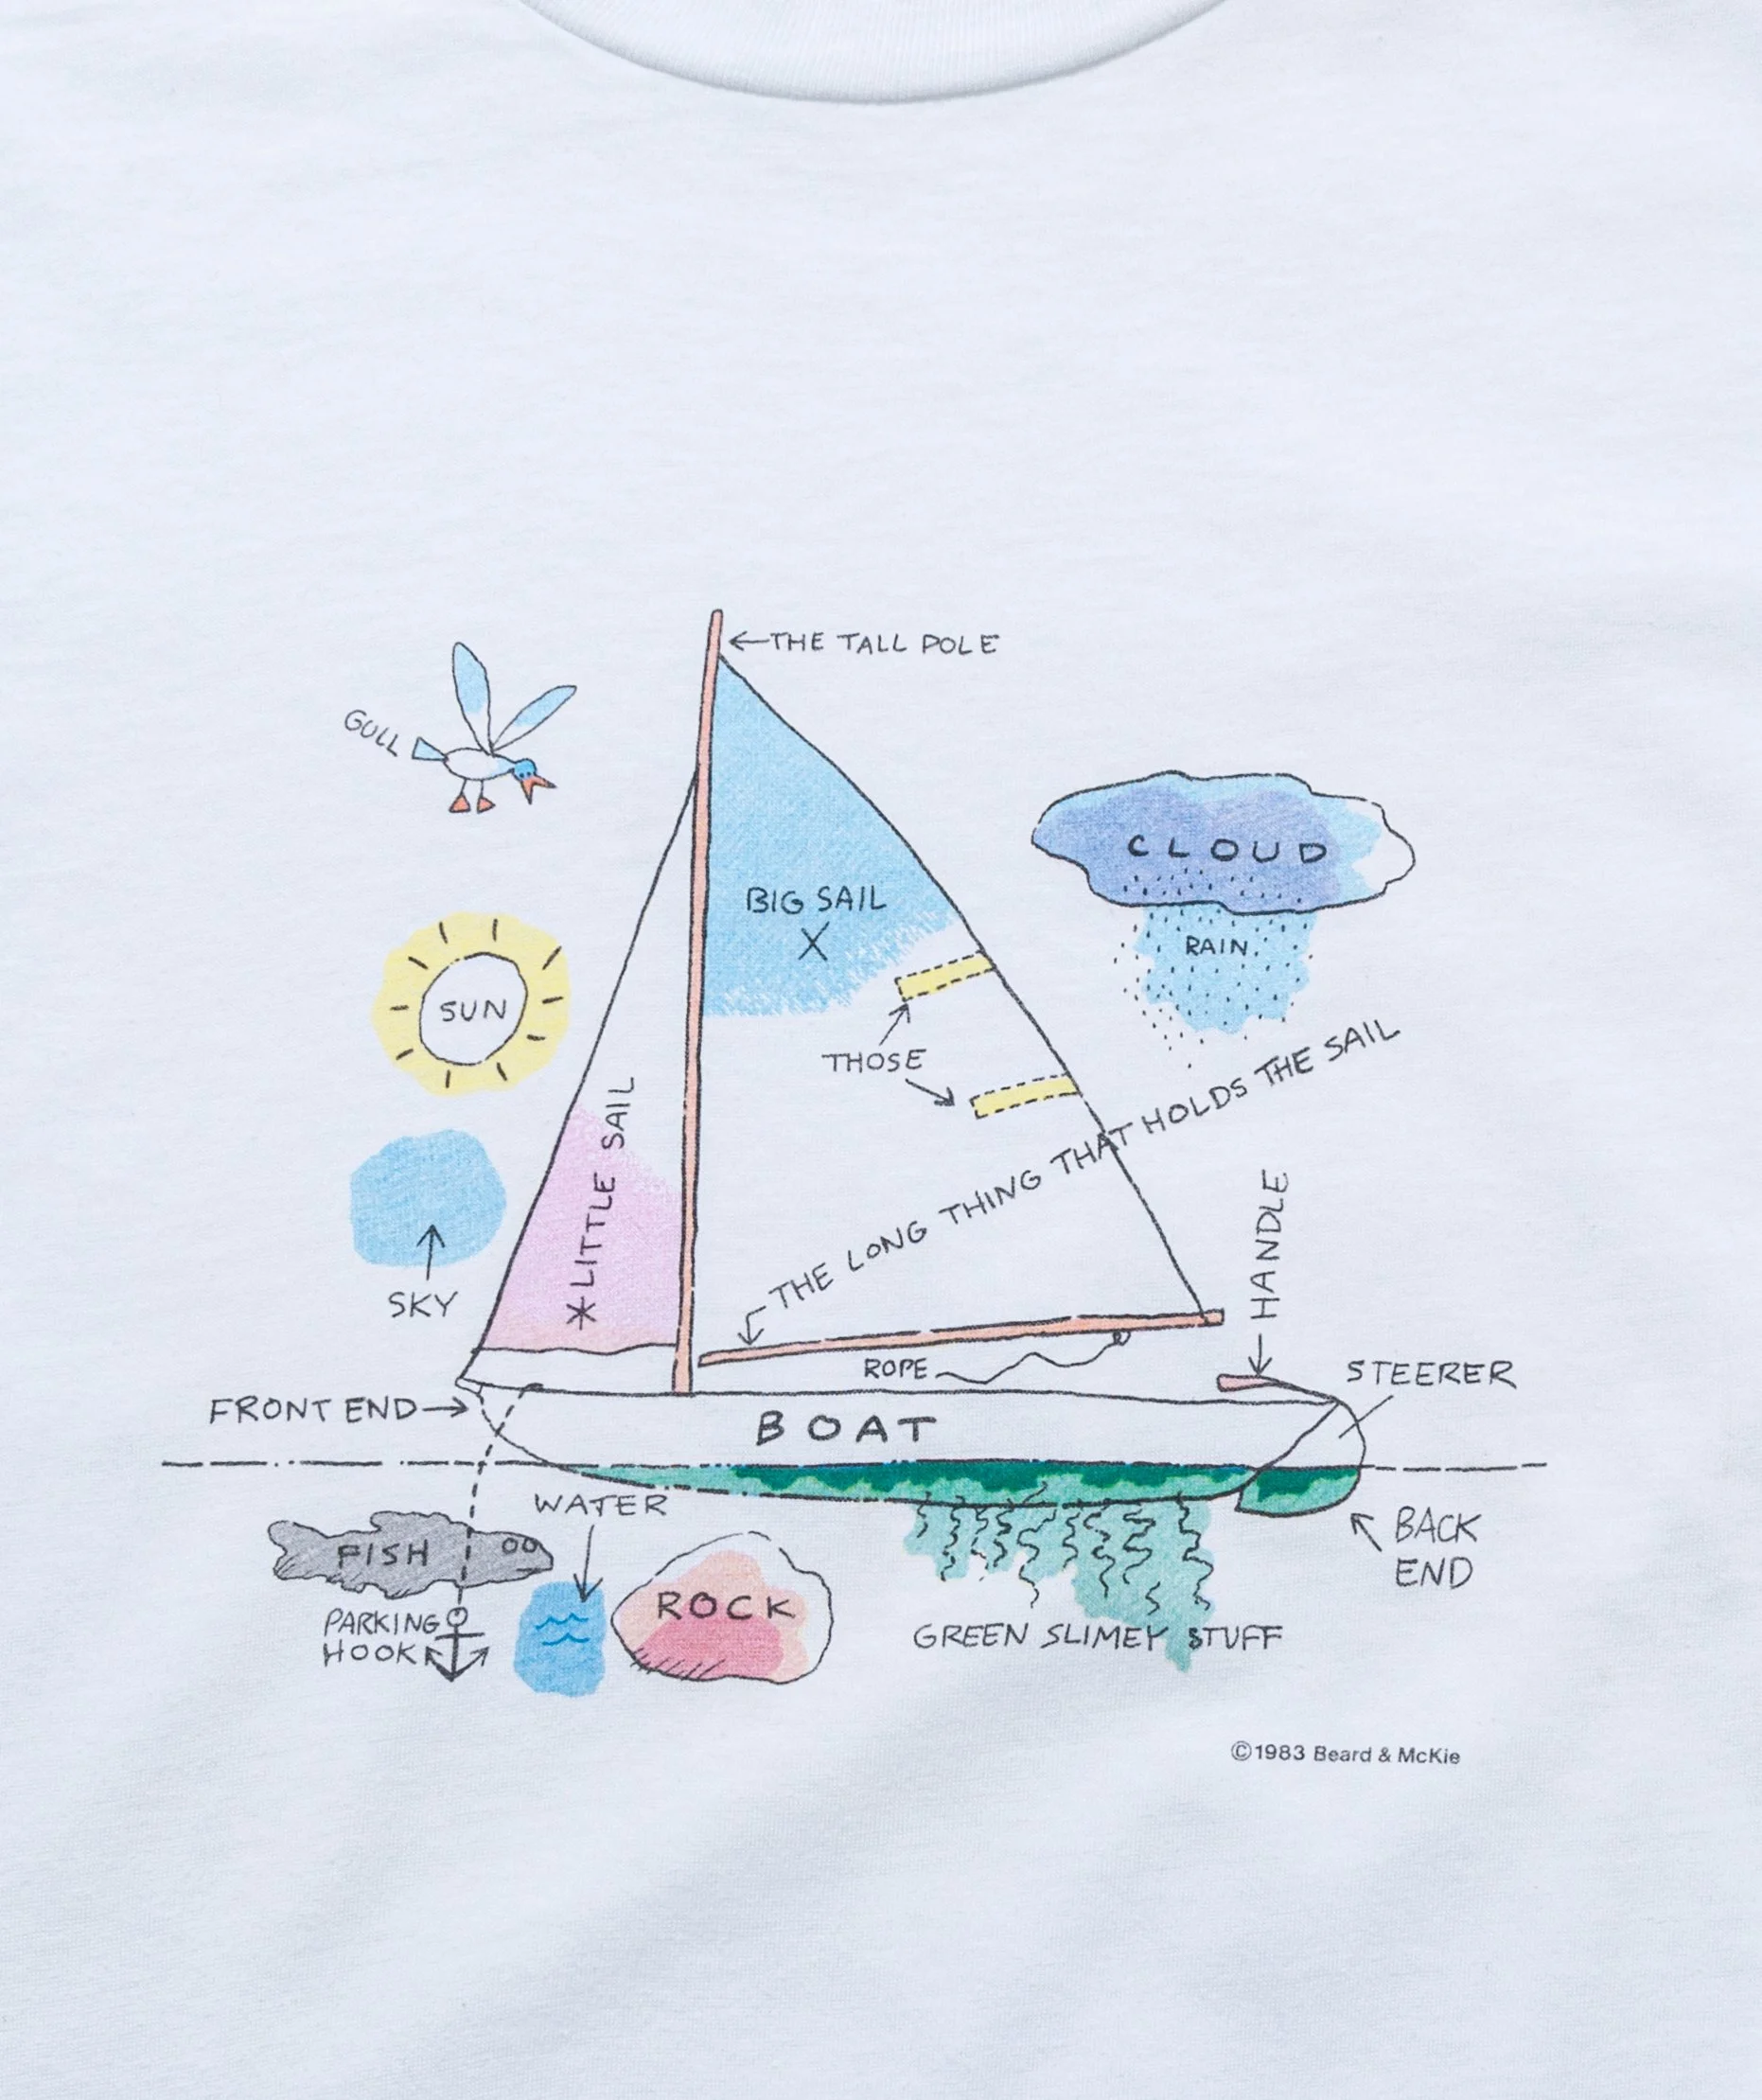 THE TALL POLE
GULL
CLOUD
BIG SAIL
X
RAIN
SUN
THOSE
THE LONG THING THAT HOLDS THE SAIL
LITTLE SAIL
HANDLE
SKY
ROPE
STEERER
FRONT END
BOAT
WATER
BACK
END
FISH
ROCK
PARKING
HOOK
GREEN SLIMEY STUFF
©1983 Beard & McKie